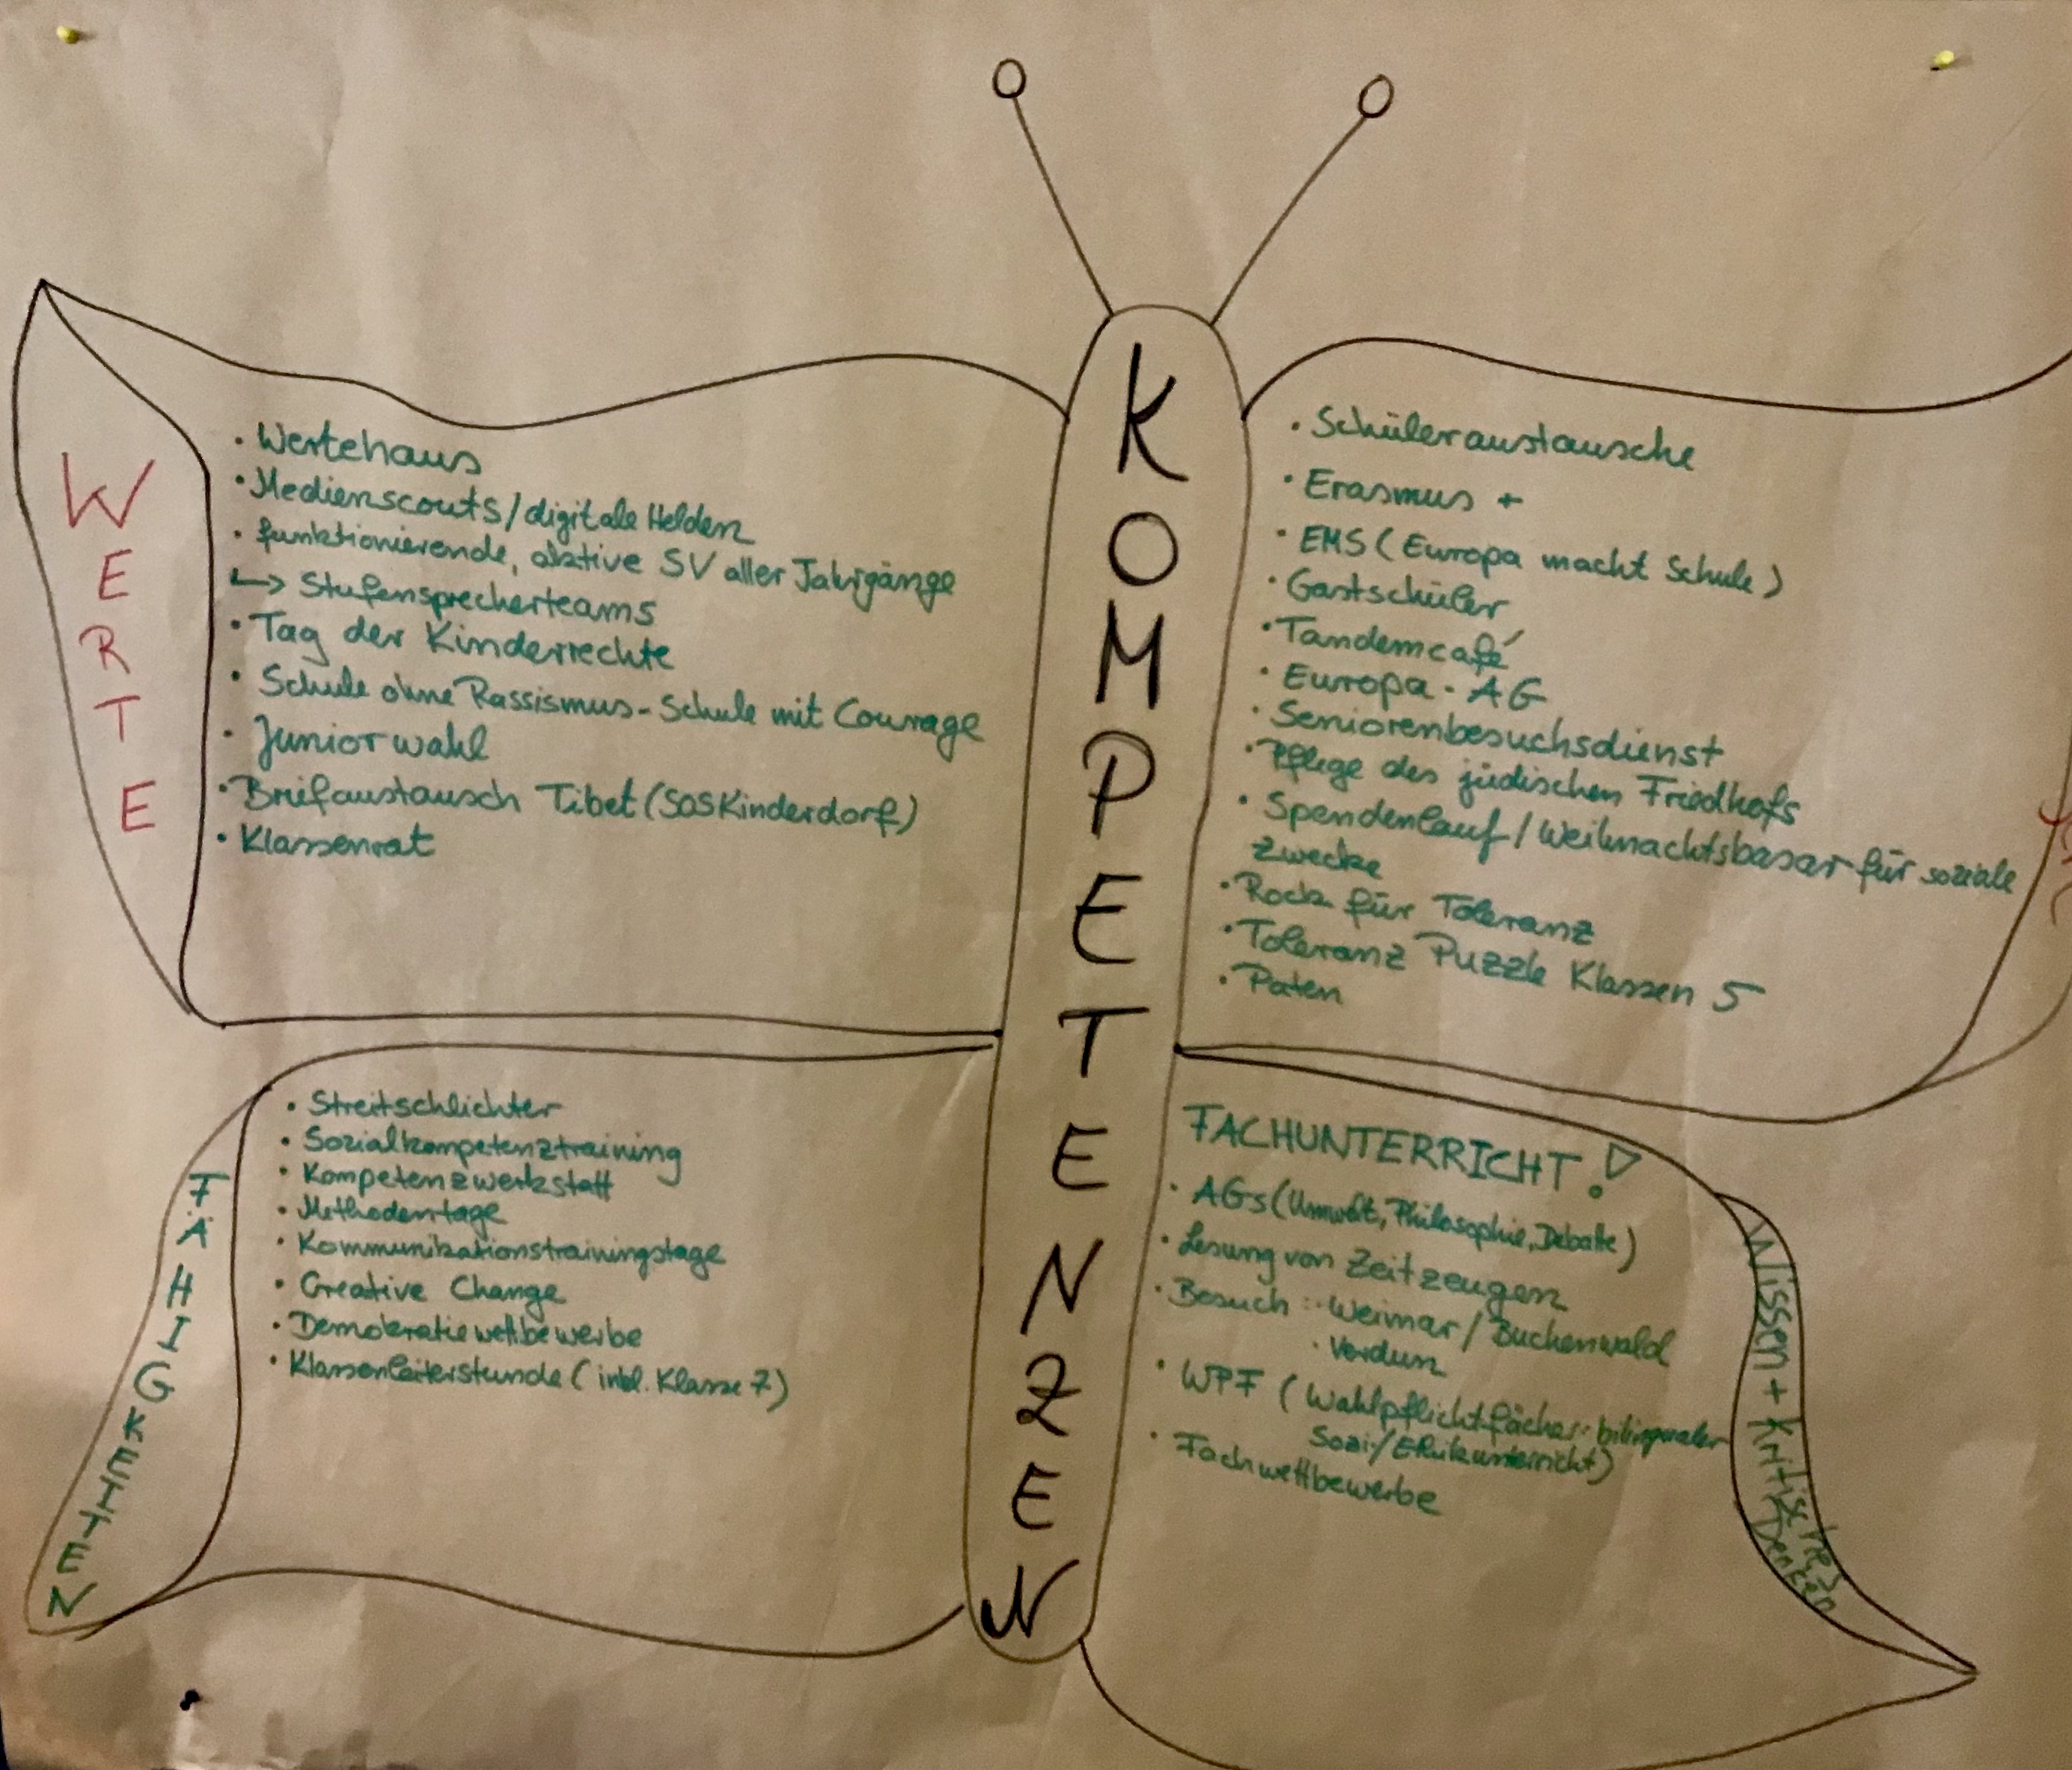 KOMPETENZEN
WERTE
· Wertehaus
· Medienscouts/digitale Helden
· funktionierende, aktive SV aller Jahrgänge
↳ Stufensprecherteams
· Tag der Kinderrechte
· Schule ohne Rassismus-Schule mit Courage
· Juniorwahl
· Briefaustausch Tibet (SOS Kinderdorf)
· Klassenrat
· Schüleraustausche
· Erasmus +
· EMS (Europa macht Schule)
· Gastschüler
· Tandemcafé
· Europa-AG
· Seniorenbesuchsdienst
· Pflege des jüdischen Friedhofs
· Spendenlauf/Weihnachtsbasar für soziale
Zwecke
· Rock für Toleranz
· Toleranz Puzzle Klassen 5
· Paten
FÄHIGKEITEN
· Streitschlichter
· Sozialkompetenztraining
· Kompetenzwerkstatt
· Methodentage
· Kommunikationstrainingstage
· Creative Change
· Demokratiewettbewerbe
· Klassenleiterstunde (inkl. Klasse 7)
FACHUNTERRICHT!
· AGs (Umwelt, Philosophie, Debatte)
· Lesung von Zeitzeugen
· Besuch: · Weimar/Buchenwald
· Verdun
· WPF (Wahlpflichtfächer: bilingualer
Sozi-/Ethikunterricht)
· Fachwettbewerbe
Wissen + Kritisches
Denken